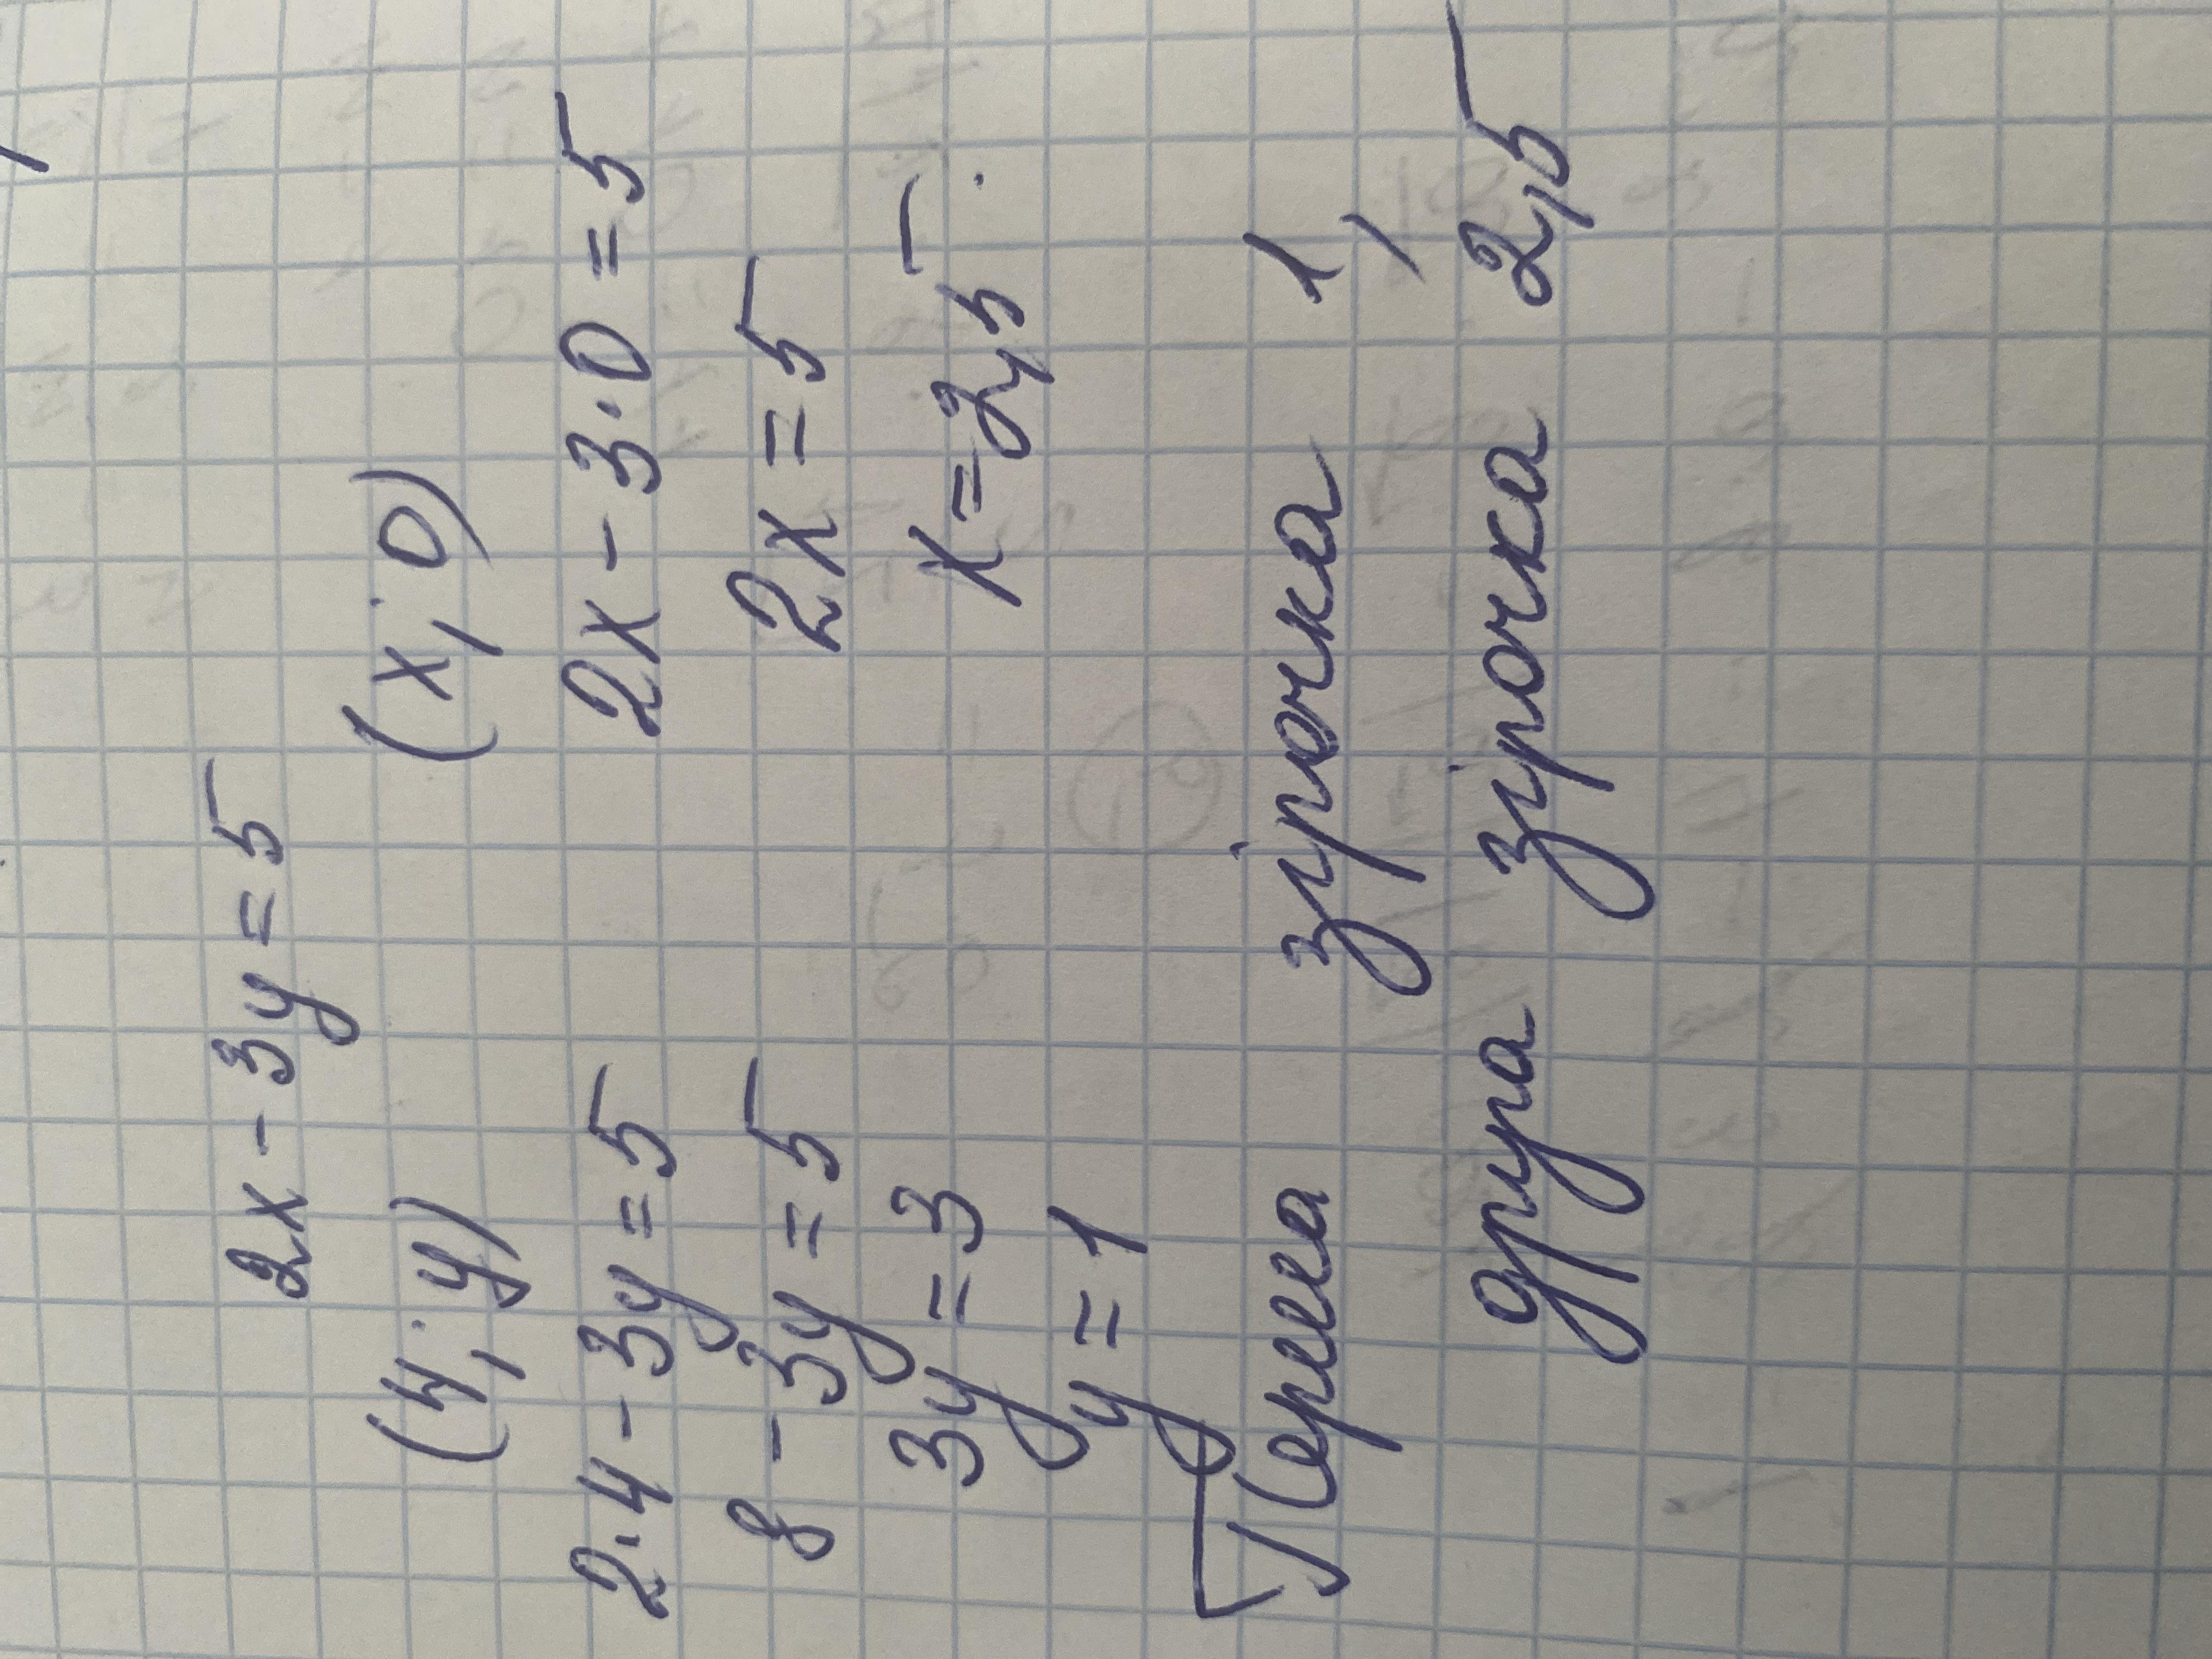 2x - 3y = 5
(4; y) (x; 0)
2·4 - 3y = 5 2x - 3·0 = 5
8 - 3y = 5 2x = 5
3y = 3 x = 2,5.
y = 1
Перша зірочка 1,
друга зірочка 2,5